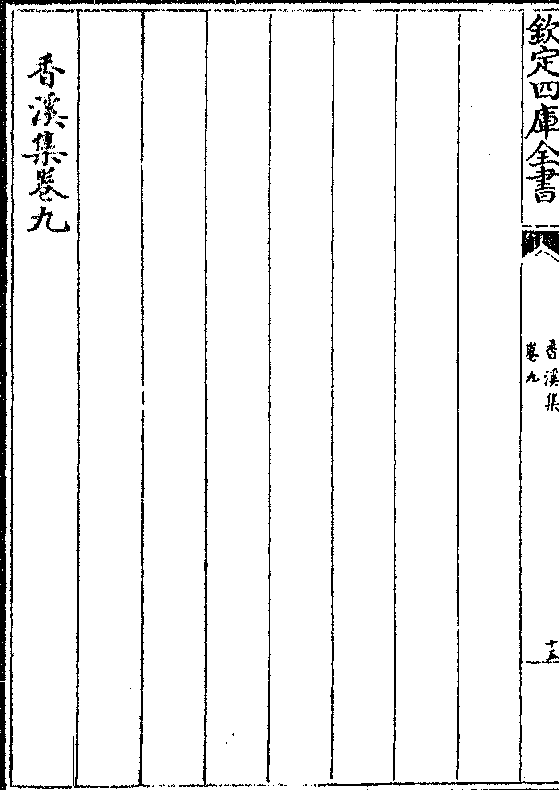 欽定四庫全書
香溪集
卷九
十五
香溪集卷九